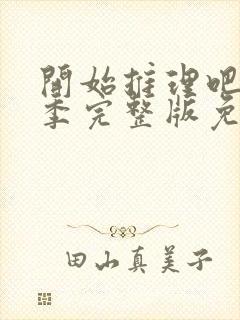 開始推理吧
季完整版免
田山真美子